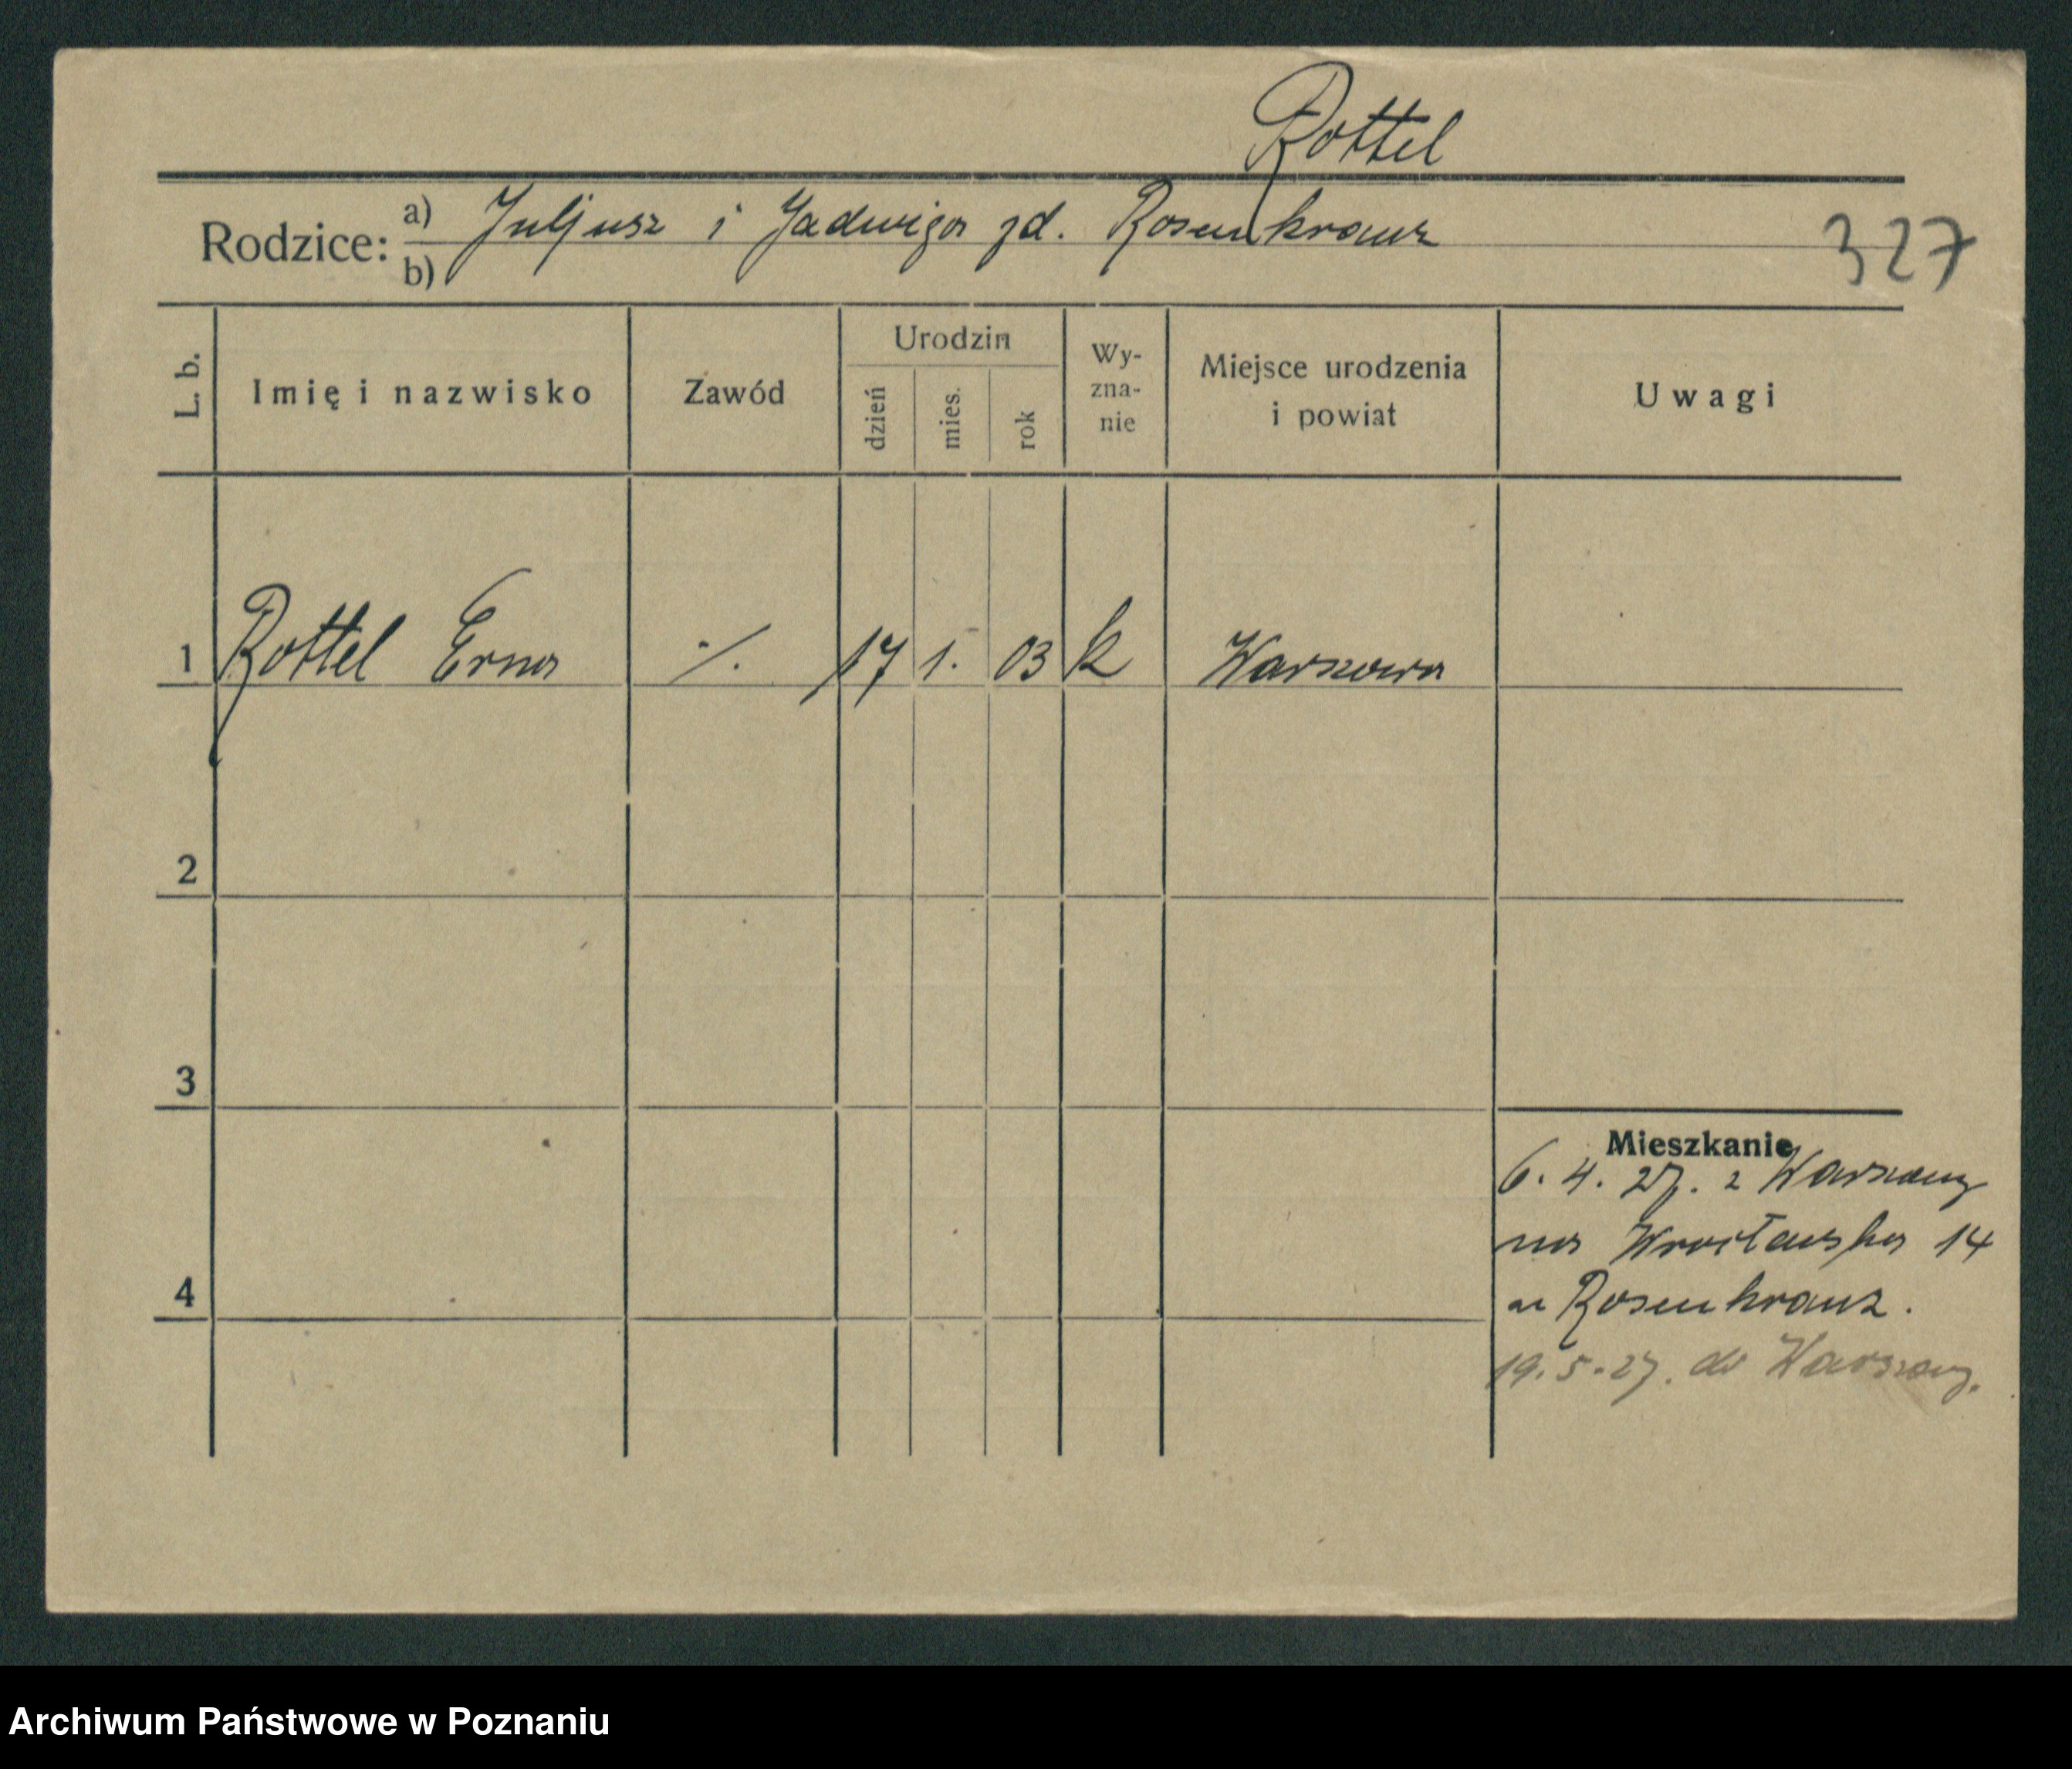 Rottel
Rodzice: a) b) Juljusz i Jadwiga zd. Rosenkranz
327
L. b.
Imię i nazwisko
Zawód
Urodzin
dzień
mies.
rok
Wy-
zna-
nie
Miejsce urodzenia
i powiat
Uwagi
1 Rottel Erna ·/. 17 1. 03 k Warszawa
2
3
4
Mieszkanie
6. 4. 27. z Warszawy
na Wrocławska 14
u Rosenkranz.
19. 5. 27. do Warszawy.
Archiwum Państwowe w Poznaniu